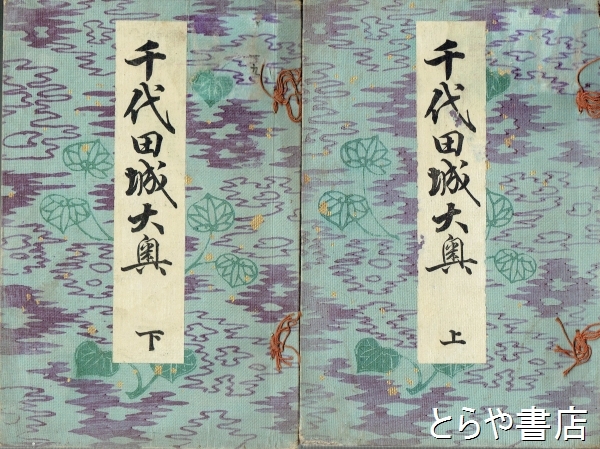 千代田城大奥
下
千代田城大奥
上
とらや書店